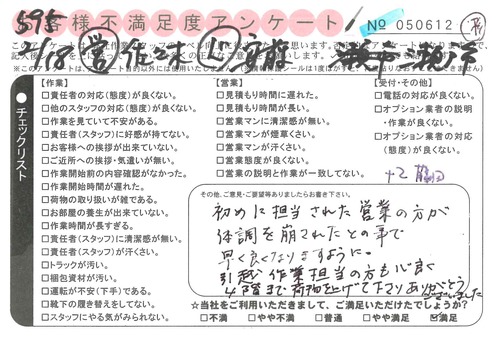 お客様不満足度アンケート
No 050612
【作業】
□責任者の対応(態度)が良くない。
□他のスタッフの対応(態度)が良くない。
□作業を見ていて不安がある。
□責任者(スタッフ)に好感が持てない。
□お客様への挨拶が出来ていない。
□ご近所への挨拶・気遣いが無い。
□作業開始前の内容確認がなかった。
□作業開始時間が遅れた。
□荷物の取り扱いが雑である。
□お部屋の養生が出来ていない。
□作業時間が長すぎる。
□責任者(スタッフ)に清潔感が無い。
□責任者(スタッフ)が汗くさい。
□トラックが汚い。
□梱包資材が汚い。
□運転が不安(下手)である。
□靴下の履き替えをしてない。
□スタッフにやる気がみられない。
チェックリスト
【営業】
□見積もり時間に遅れた。
□見積もり時間が長い。
□営業マンに清潔感が無い。
□営業マンが煙草くさい。
□営業マンが汗くさい。
□営業態度が良くない。
□営業の説明と作業が一致してない。
【受付・その他】
□電話の対応が良くない。
□オプション業者の説明
・作業が良くない。
□オプション業者の対応
(態度)が良くない。
その他、ご意見・ご要望等ありましたらお書き下さい。
初めに担当された営業の方が
体調を崩されたとの事で
早く良くなりますように。
引越作業担当の方も心良く
4階まで荷物を上げて下さりありがとう
ございました
☆当社をご利用いただきまして、ご満足いただけたでしょうか?
□不満 □やや不満 □普通 □やや満足 ☑満足